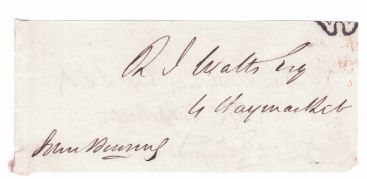 R J Watts Esq
4 Haymarket
John Bowring